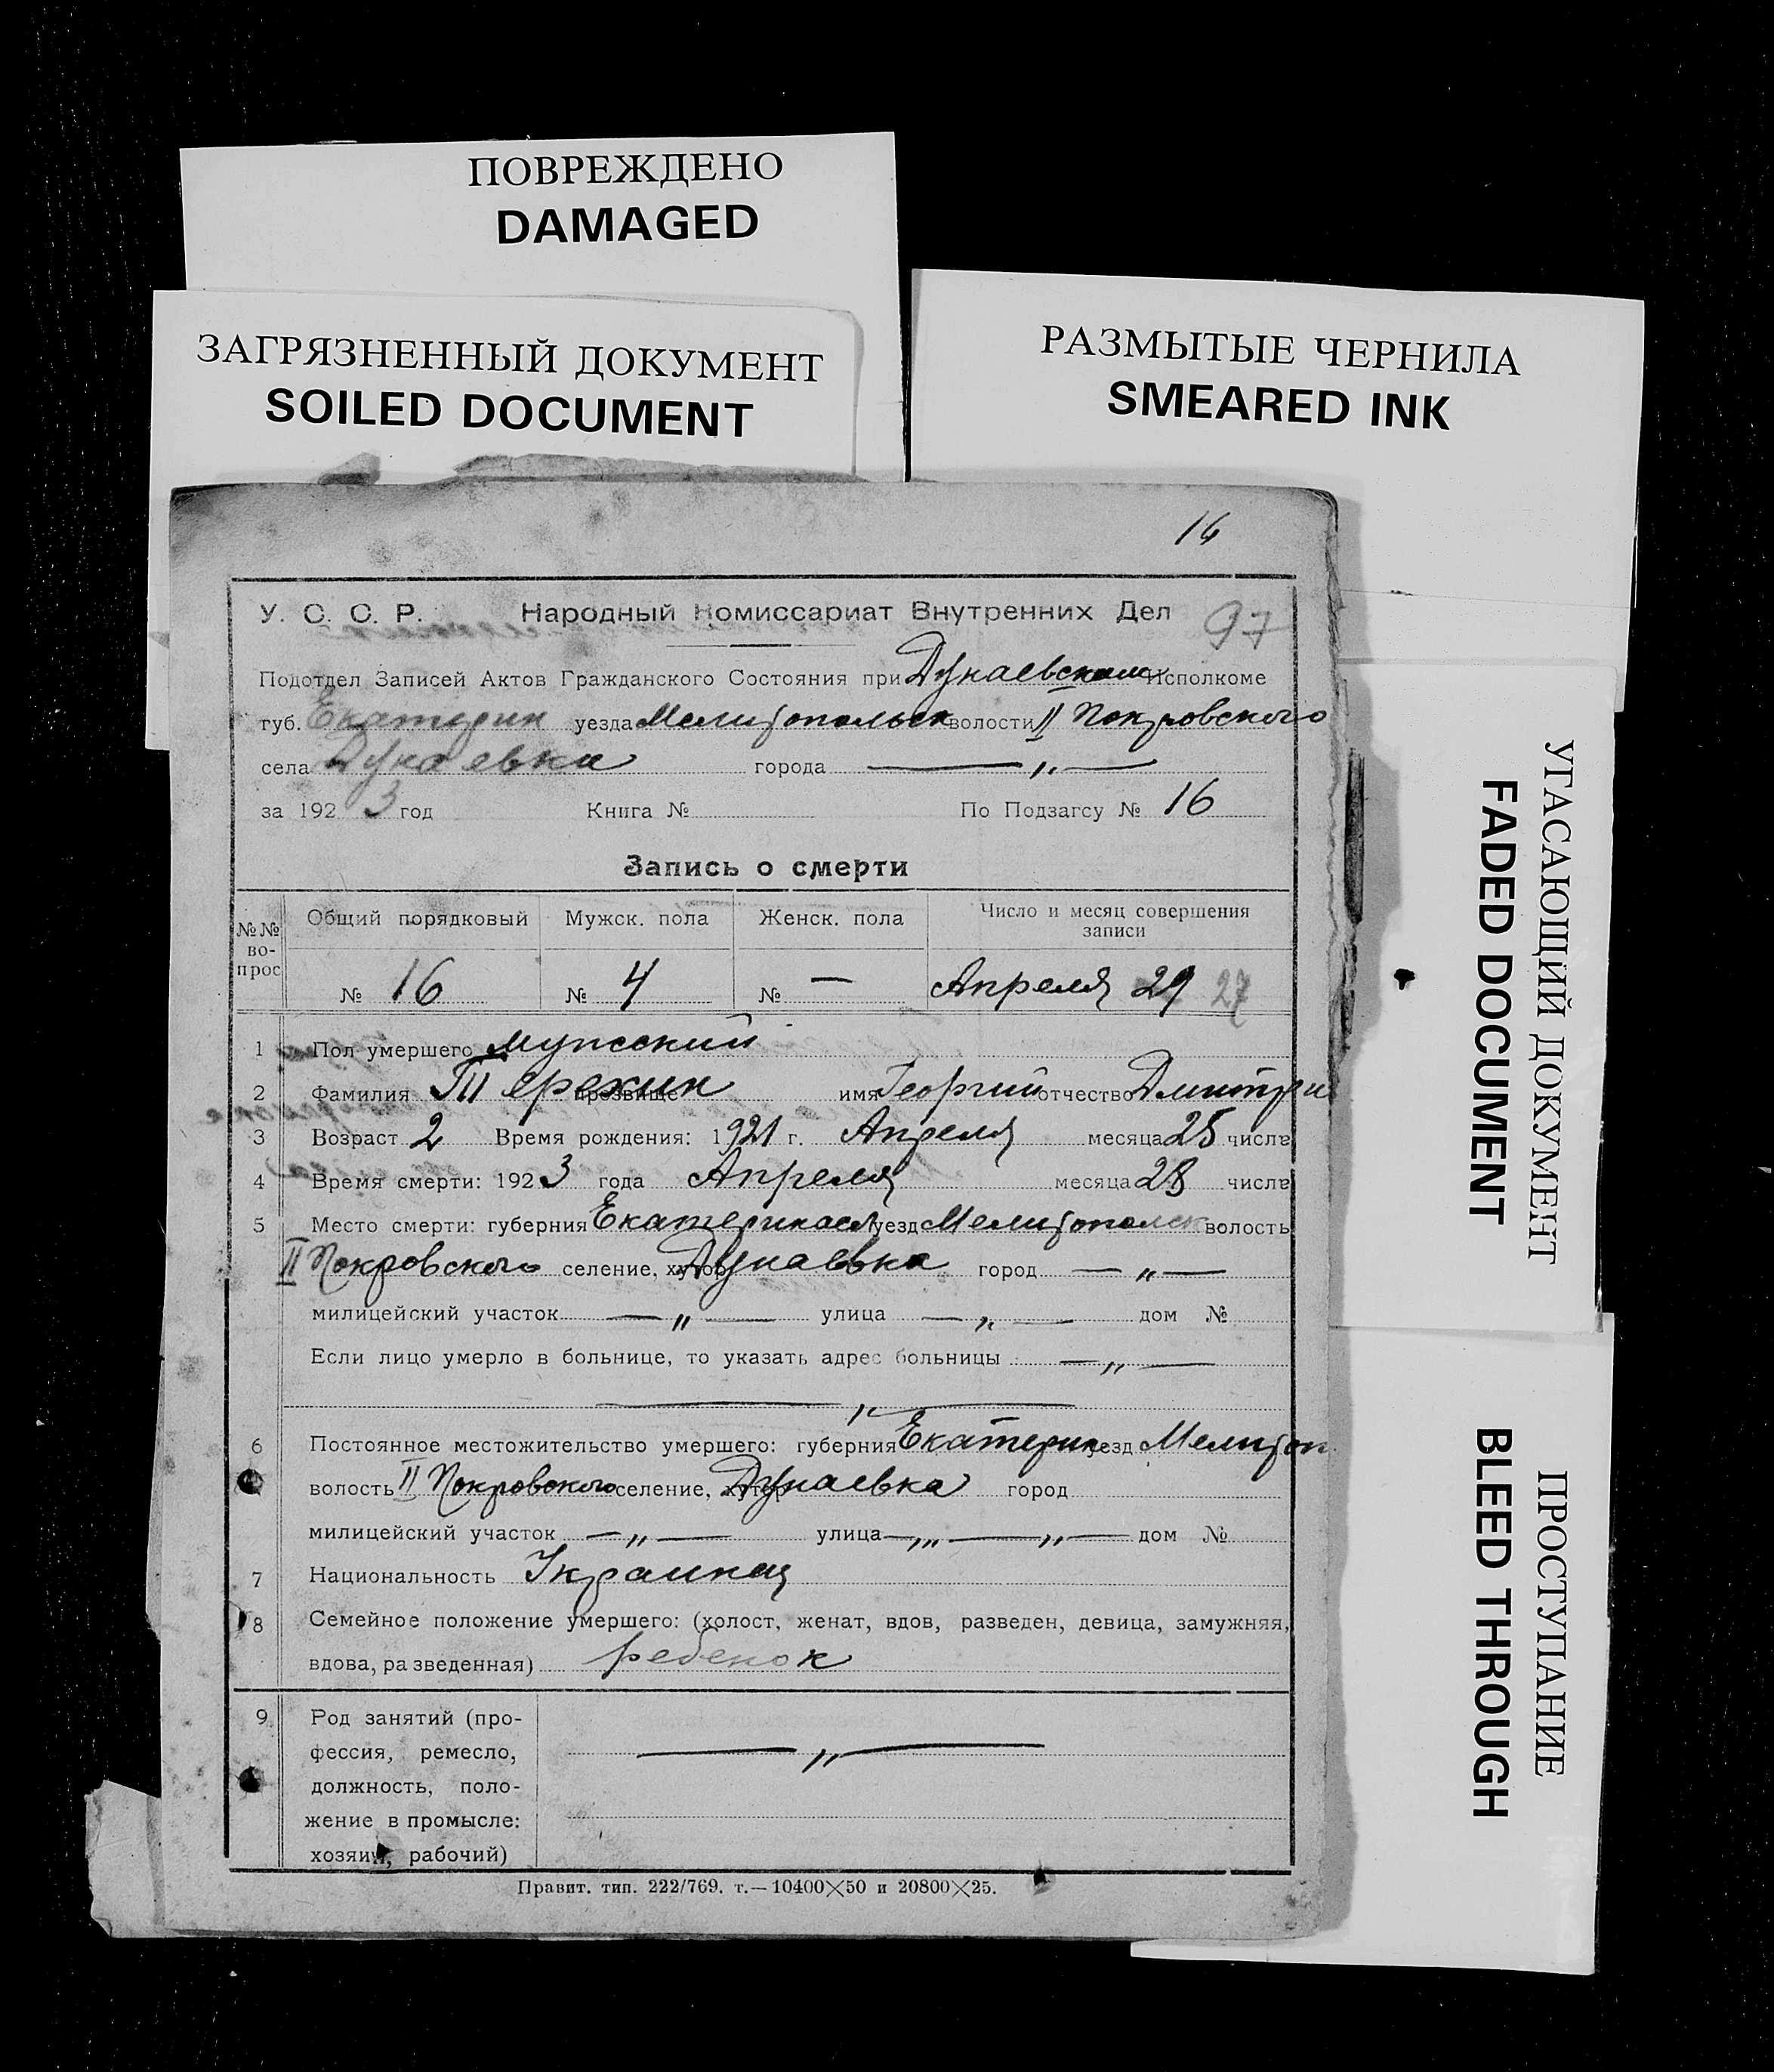 ПОВРЕЖДЕНО
DAMAGED
ЗАГРЯЗНЕННЫЙ ДОКУМЕНТ
SOILED DOCUMENT
РАЗМЫТЫЕ ЧЕРНИЛА
SMEARED INK
16
У. С. С. Р. Народный Комиссариат Внутренних Дел 97
Подотдел Записей Актов Гражданского Состояния при Дунаевском Исполкоме
губ. Екатерин уезда Мелитопольск волости II Покровского
села Дунаевка города — „ —
за 1923 год Книга № По Подзагсу № 16
Запись о смерти
№№ во- прос Общий порядковый Мужск. пола Женск. пола Число и месяц совершения записи
№ 16 № 4 № — Апреля 29 27
1 Пол умершего мужской
2 Фамилия прозвище Терехин имя Георгий отчество Дмитри
3 Возраст 2 Время рождения: 1921 г. Апреля месяца 25 числа
4 Время смерти: 1923 года Апреля месяца 28 числа
5 Место смерти: губерния уезд Мелитопольск волость
II Покровского селение, хутор Дунаевка город — „ —
милицейский участок — „ — улица — „ — дом №
Если лицо умерло в больнице, то указать адрес больницы — „ —
— „ —
6 Постоянное местожительство умершего: губерния Екатерин уезд Мелитоп
волость II Покровского селение, хутор Дунаевка город
милицейский участок — „ — улица — „ — „ — дом №
7 Национальность Украинец
8 Семейное положение умершего: (холост, женат, вдов, разведен, девица, замужняя,
вдова, разведенная) ребенок
9 Род занятий (про-
фессия, ремесло, — „ —
должность, поло-
жение в промысле:
хозяин, рабочий)
Правит. тип. 222/769. т.—10400×50 и 20800×25.
УГАСАЮЩИЙ ДОКУМЕНТ
FADED DOCUMENT
ПРОСТУПАНИЕ
BLEED THROUGH